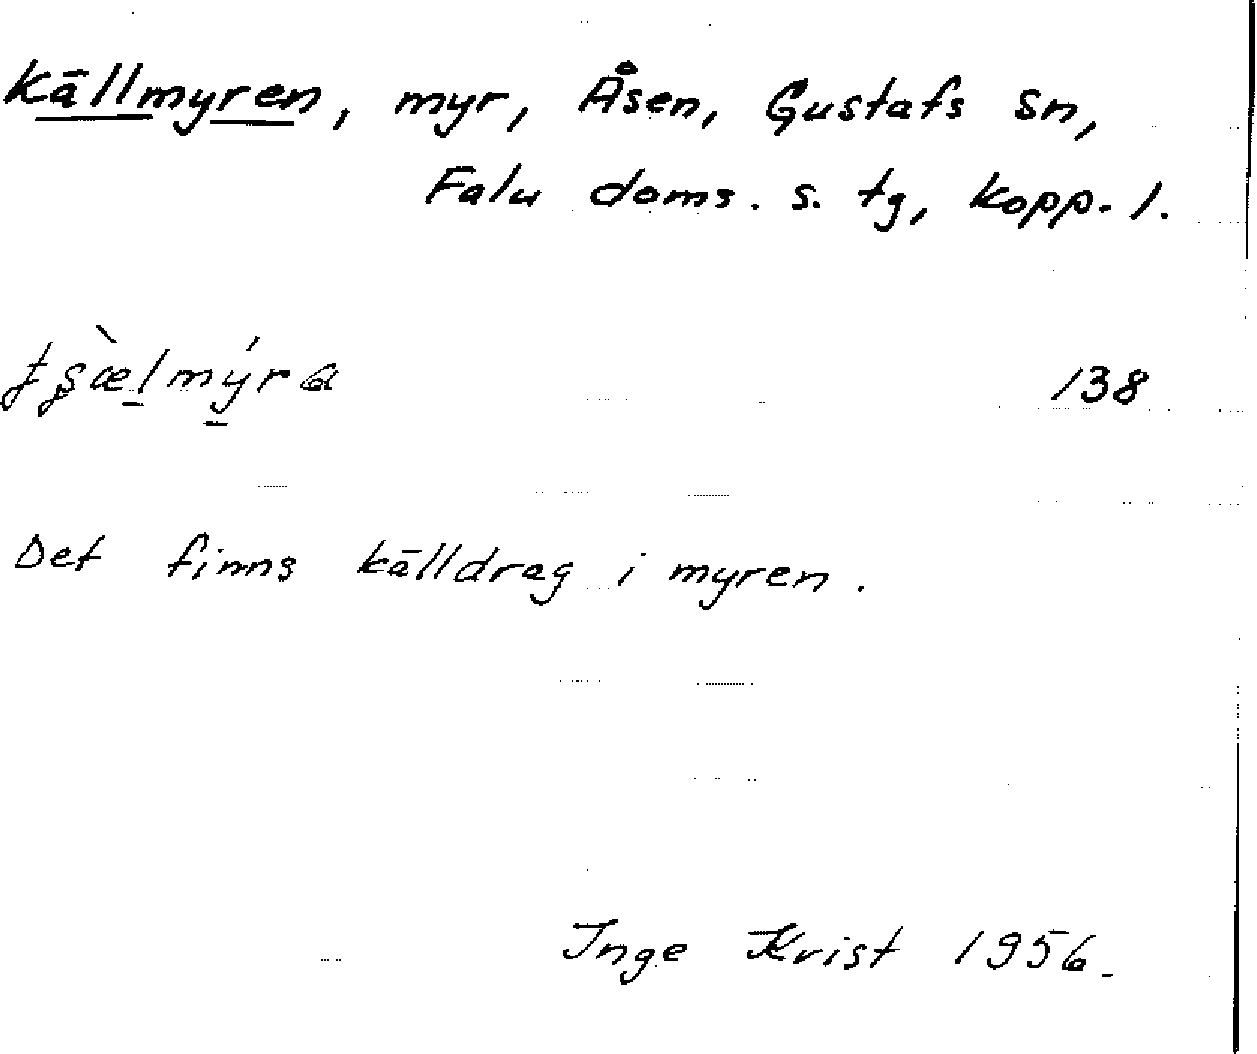 Källmyren, myr, Åsen, Gustafs sn,
Falu doms. s. tg, Kopp. l.
138
Det finns källdrag i myren.
Inge Krist 1956.